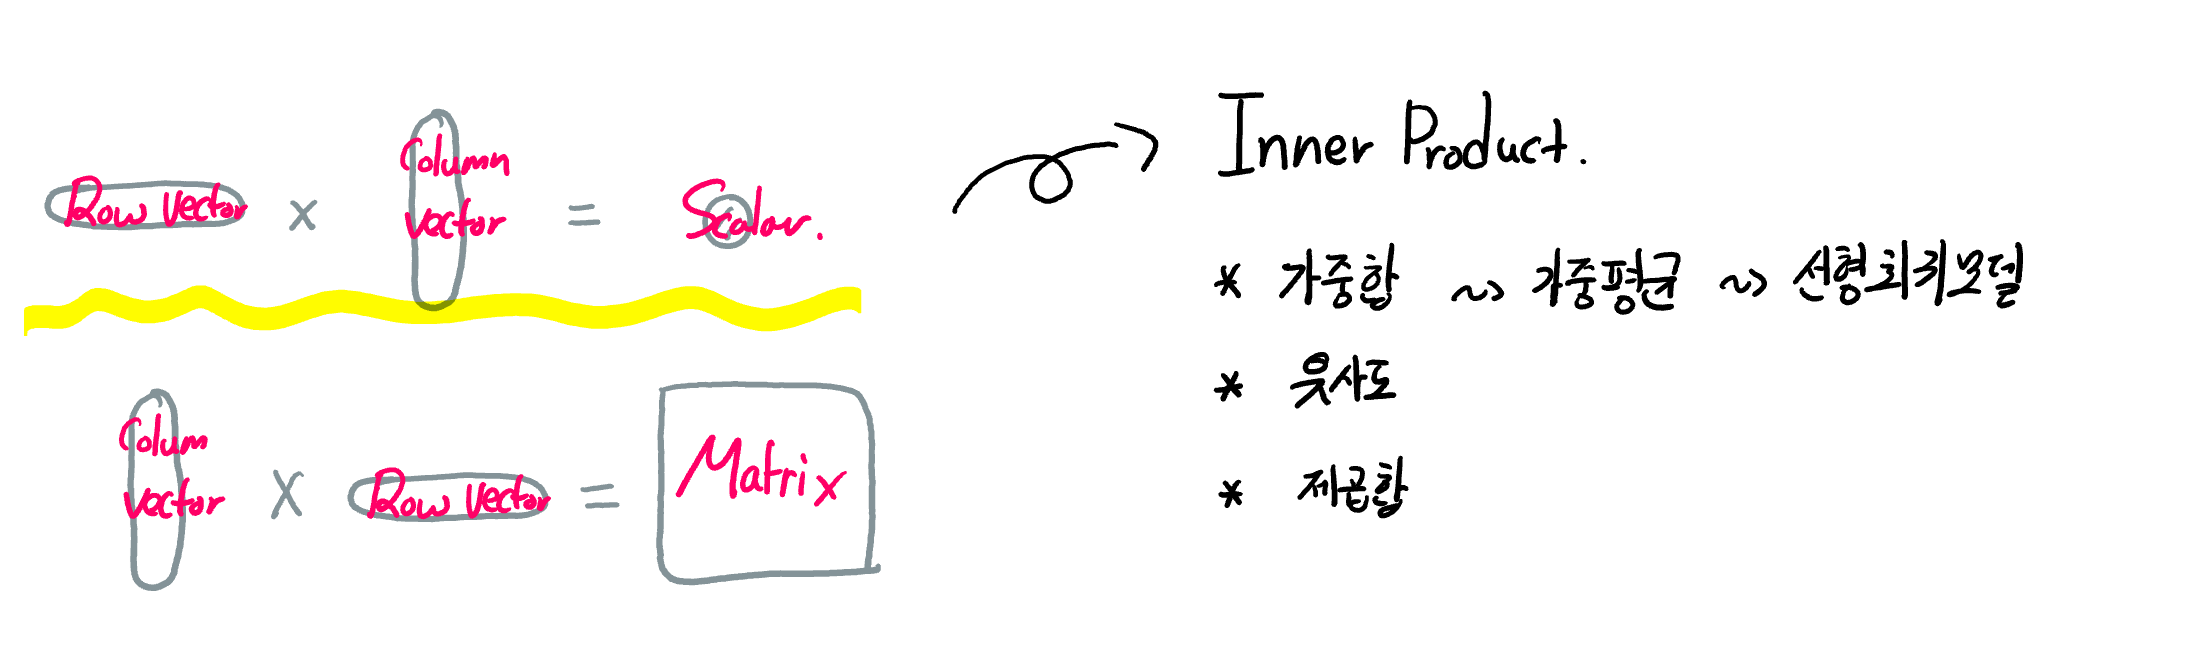 Row Vector × Column Vector = Scalar.
Colum Vector × Row Vector = Matrix
Inner Product.
* 가중합 ~> 가중평균 ~> 선형회귀모델
* 유사도
* 제곱합